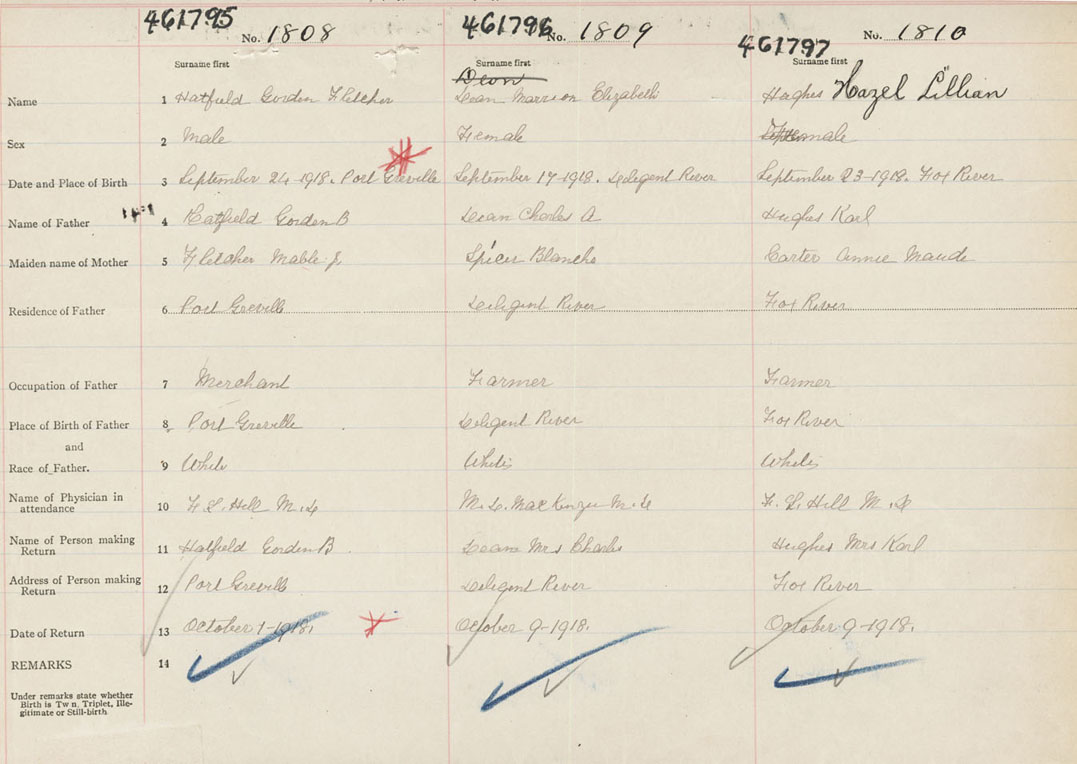 461795 461796 461797
No. 1808 No. 1809 No. 1810
Surname first Surname first Surname first
Name 1 Hatfield Gorden Fletcher Dean Marrion Elizabeth Hughes Hazel Lillian
Sex 2 Male Female Female
Date and Place of Birth 3 September 24-1918. Port Greville September 17-1918. Deligent River September 23-1918. Fox River
Name of Father 4 Hatfield Gorden B Dean Charles A Hughes Karl
Maiden name of Mother 5 Fletcher Mable J. Spicer Blanche Carter Annie Maude
Residence of Father 6 Port Greville Deligent River Fox River
Occupation of Father 7 Merchant Farmer Farmer
Place of Birth of Father 8 Port Greville Deligent River Fox River
and
Race of Father. 9 White White White
Name of Physician in
attendance 10 F. L. Hill M.D M. D. MacKenzie M.D F. L. Hill M.D
Name of Person making
Return 11 Hatfield Gorden B. Deane Mrs Charles Hughes Mrs Karl
Address of Person making
Return 12 Port Greville Deligent River Fox River
Date of Return 13 October 1-1918. October 9-1918. October 9-1918.
REMARKS 14
Under remarks state whether
Birth is Twn, Triplet, Ille-
gitimate or Still-birth